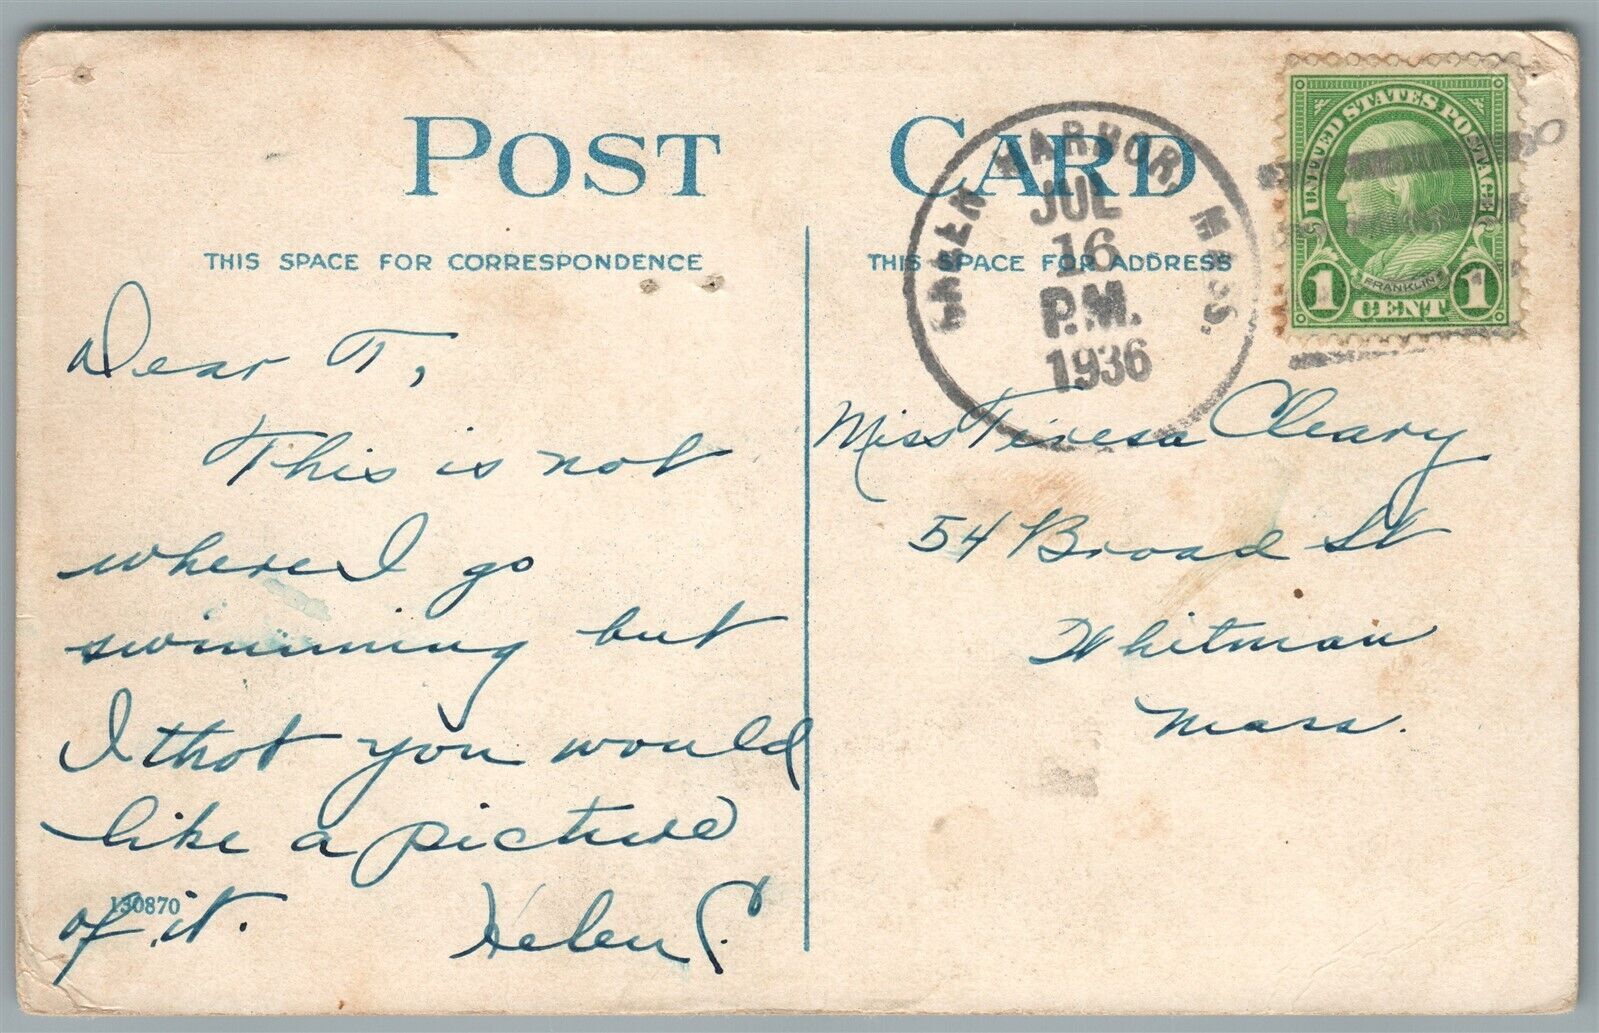 POST CARD
THIS SPACE FOR CORRESPONDENCE
THIS SPACE FOR ADDRESS
GREEN HARBOR, MASS.
JUL
16
P.M.
1936
UNITED STATES POSTAGE
FRANKLIN
1 CENT 1
Dear T,
This is not
where I go
swimming but
I thot you would
like a picture
of it.
Helen C.
130870
Miss Teresa Cleary
54 Broad St
Whitman
Mass.